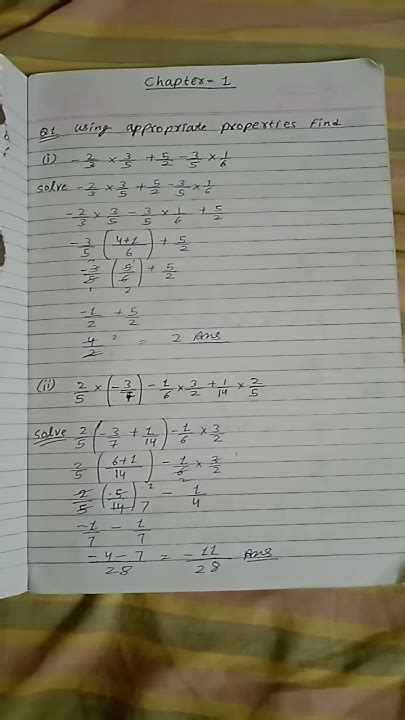 Chapter - 1
Q1 Using appropriate properties find
(i) -2/3 × 3/5 + 5/2 - 3/5 × 1/6
solve -2/3 × 3/5 + 5/2 - 3/5 × 1/6
-2/3 × 3/5 - 3/5 × 1/6 + 5/2
-3/5 (4+1/6) + 5/2
-3/5 (5/6) + 5/2
1 2
-1/2 + 5/2
4/2 2 = 2 Ans
(ii) 2/5 × (-3/7) - 1/6 × 3/2 + 1/14 × 2/5
solve 2/5 (-3/7 + 1/14) - 1/6 × 3/2
2/5 (6+1/14) - 1/6 × 3/2
2
2/5 (-5/14) 7 - 1/4
-1/7 - 1/7
-4-7/28 = -11/28 Ans